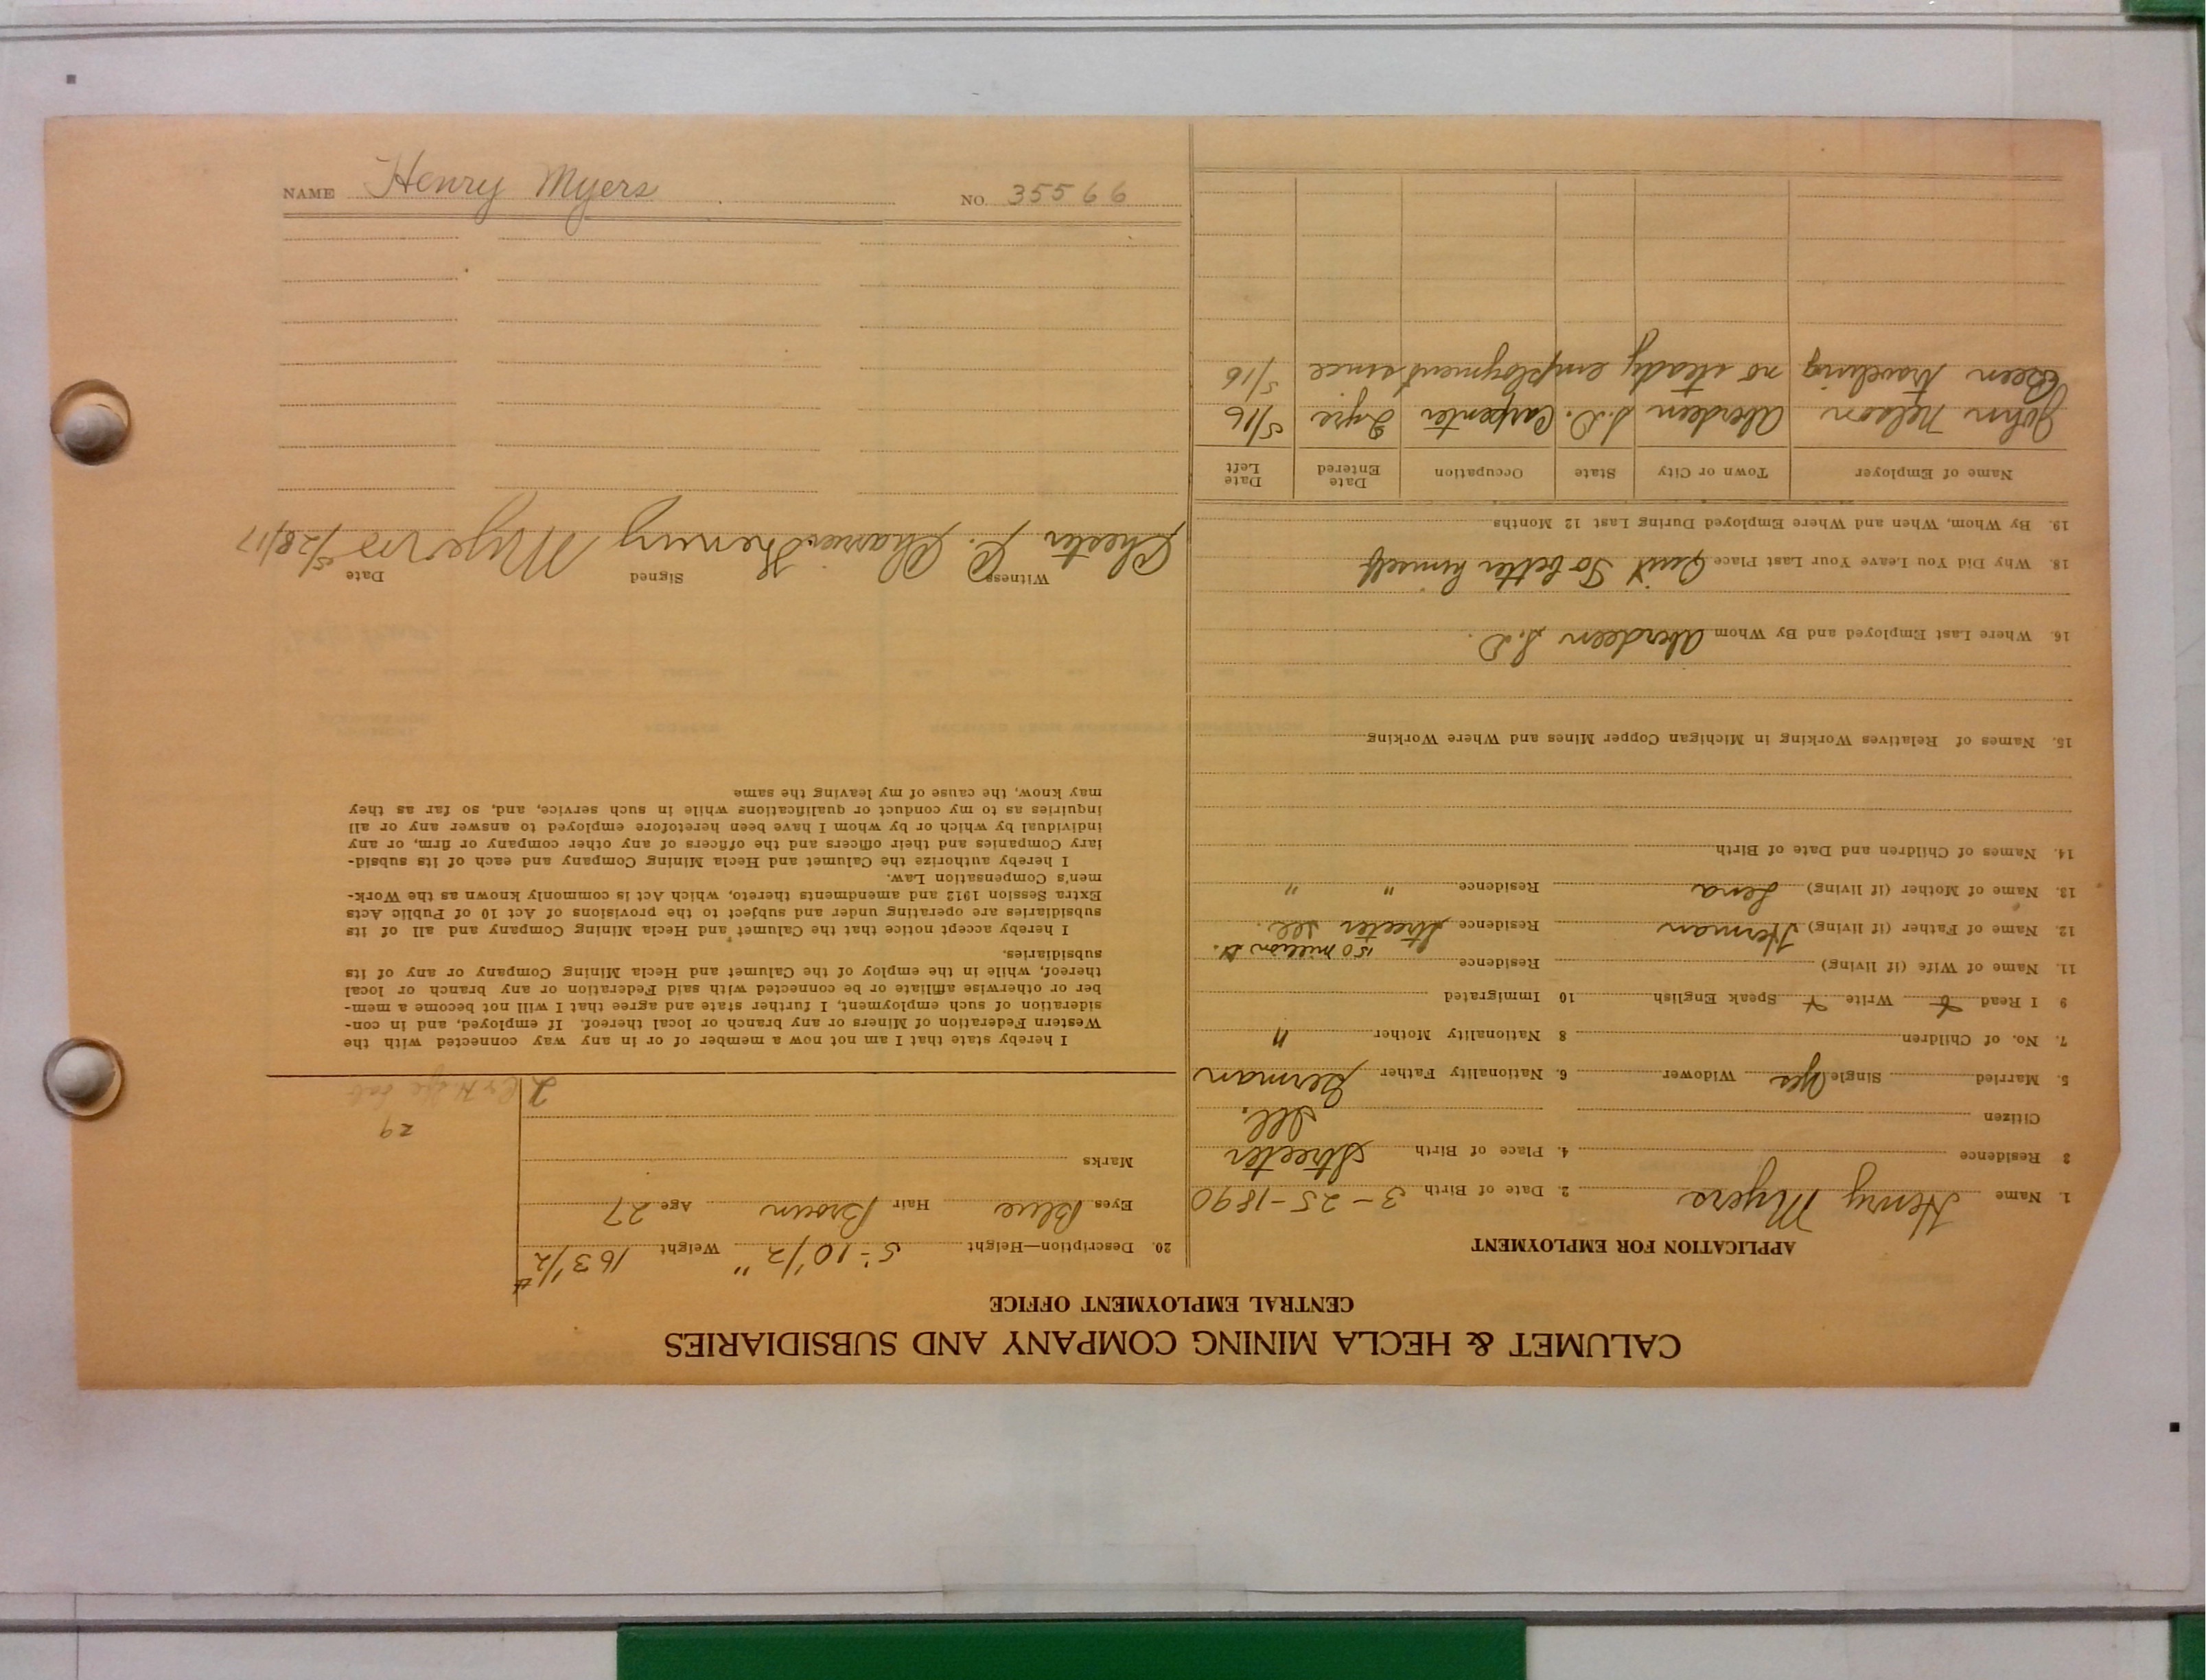 CALUMET & HECLA MINING COMPANY AND SUBSIDIARIES
CENTRAL EMPLOYMENT OFFICE
APPLICATION FOR EMPLOYMENT
1. Name Henry Myers 2. Date of Birth 3-25-1890
3 Residence 4. Place of Birth Streeter
Citizen Ill.
5. Married Single yes Widower 6. Nationality Father German
7. No. of Children 8 Nationality Mother "
9 I Read Write Speak English 10 Immigrated
11. Name of Wife (if living) Residence 150 million St.
12. Name of Father (if living) Herman Residence Streeter Ill.
13. Name of Mother (if living) Lena Residence " "
14. Names of Children and Date of Birth
15. Names of Relatives Working in Michigan Copper Mines and Where Working
16. Where Last Employed and By Whom Aberdeen S.D.
18. Why Did You Leave Your Last Place Quit To better himself
19. By Whom, When and Where Employed During Last 12 Months
Name of Employer Town or City State Occupation Date Entered Date Left
John Nelson Aberdeen S.D. Carpenter 5/16
Been traveling no steady employment since 5/16
20. Description—Height 5'-10 1/2" Weight 163 1/2 #
Eyes Blue Hair Brown Age 27
Marks
29
I hereby state that I am not now a member of or in any way connected with the
Western Federation of Miners or any branch or local thereof. If employed, and in con-
sideration of such employment, I further state and agree that I will not become a mem-
ber or otherwise affiliate or be connected with said Federation or any branch or local
thereof, while in the employ of the Calumet and Hecla Mining Company or any of its
subsidiaries.
I hereby accept notice that the Calumet and Hecla Mining Company and all of its
subsidiaries are operating under and subject to the provisions of Act 10 of Public Acts
Extra Session 1912 and amendments thereto, which Act is commonly known as the Work-
men's Compensation Law.
I hereby authorize the Calumet and Hecla Mining Company and each of its subsid-
iary Companies and their officers and the officers of any other company or firm, or any
individual by which or by whom I have been heretofore employed to answer any or all
inquiries as to my conduct or qualifications while in such service, and, so far as they
may know, the cause of my leaving the same
Witness Signed Date
Chester C. Henry Myers 5/28/17
NAME Henry Myers NO. 35566